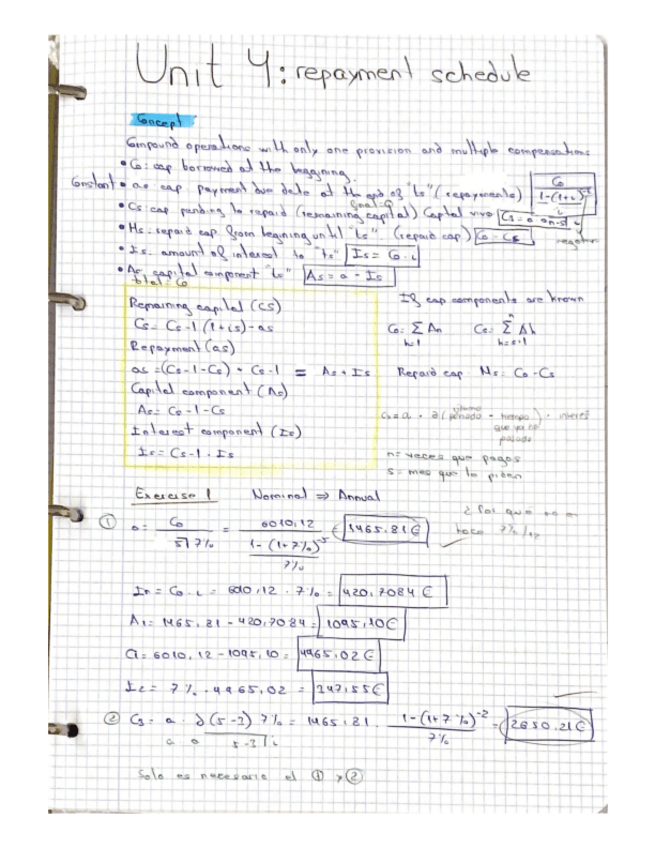 Unit 4: repayment schedule
Concept
Compound operations with only one provision and multiple compensations
• Co: cap borrowed at the beggining.
Constant • as cap. payment due date at the end of "ts" (repayments) Co / 1-(1+i)^-5 / i
final=0
• Cs: cap pending to repaid (remaining capital) Capital vivo Cs = a a n-s i
• Ms: repaid cap from begining until "ts". (repaid cap) Co - Cs
• Is. amount of interest to "ts" Is = Co . i
• As capital component "ts" As = a - Is
total = Co
Remaining capital (CS)
Cs = Cs-1 (1+is) - as
Repayment (as)
as = (Cs-1-Cs) + Cs-1 = As + Is
Capital component (As)
As = Cs-1-Cs
Interest component (Is)
Is = Cs-1 . Is
If cap components are known
Co = Σ An Cs = Σ Ah
h=1 h=s+1
Repaid cap Ms = Co - Cs
que ya no
n = veces que pagas
s = mes que te piden
Exercise 1 Nominal ⇒ Annual
① a = Co / 5¬7% = 6010,12 / 1-(1+7%)^-5 / 7% = 1465.81€
¿Por que no se
hace 7%/12
In = Co . i = 6010,12 . 7% = 420,7084 €
A1 = 1465,81 - 420,7084 = 1095,10€
C1 = 6010,12 - 1095,10 = 4965,02€
I2 = 7% . 4965,02 = 247,55€
② C3 = a . a (5-3) 7% = 1465,81 . 1-(1+7%)^-2 / 7% = 2650.21€
5-3¬i
Solo es necesario el ① y ②